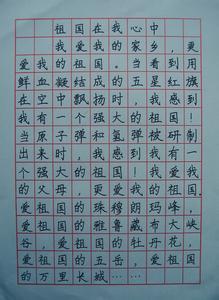 祖国在我心中
我爱我的家乡，更
爱我的祖国。当看到用
鲜血凝结成的五星红旗
在空中飘扬时，我感到
我有一个强大的祖国！
当原子弹和氢弹被研制
出来时，我感到我有一
个强大的祖国！我爱我
的父母，更爱我的祖国。
爱祖国的珠穆朗玛峰，
爱祖国的雅鲁藏布大峡
谷，爱祖国的牡丹花，
爱祖国的五岳，爱祖国
的万里长城……